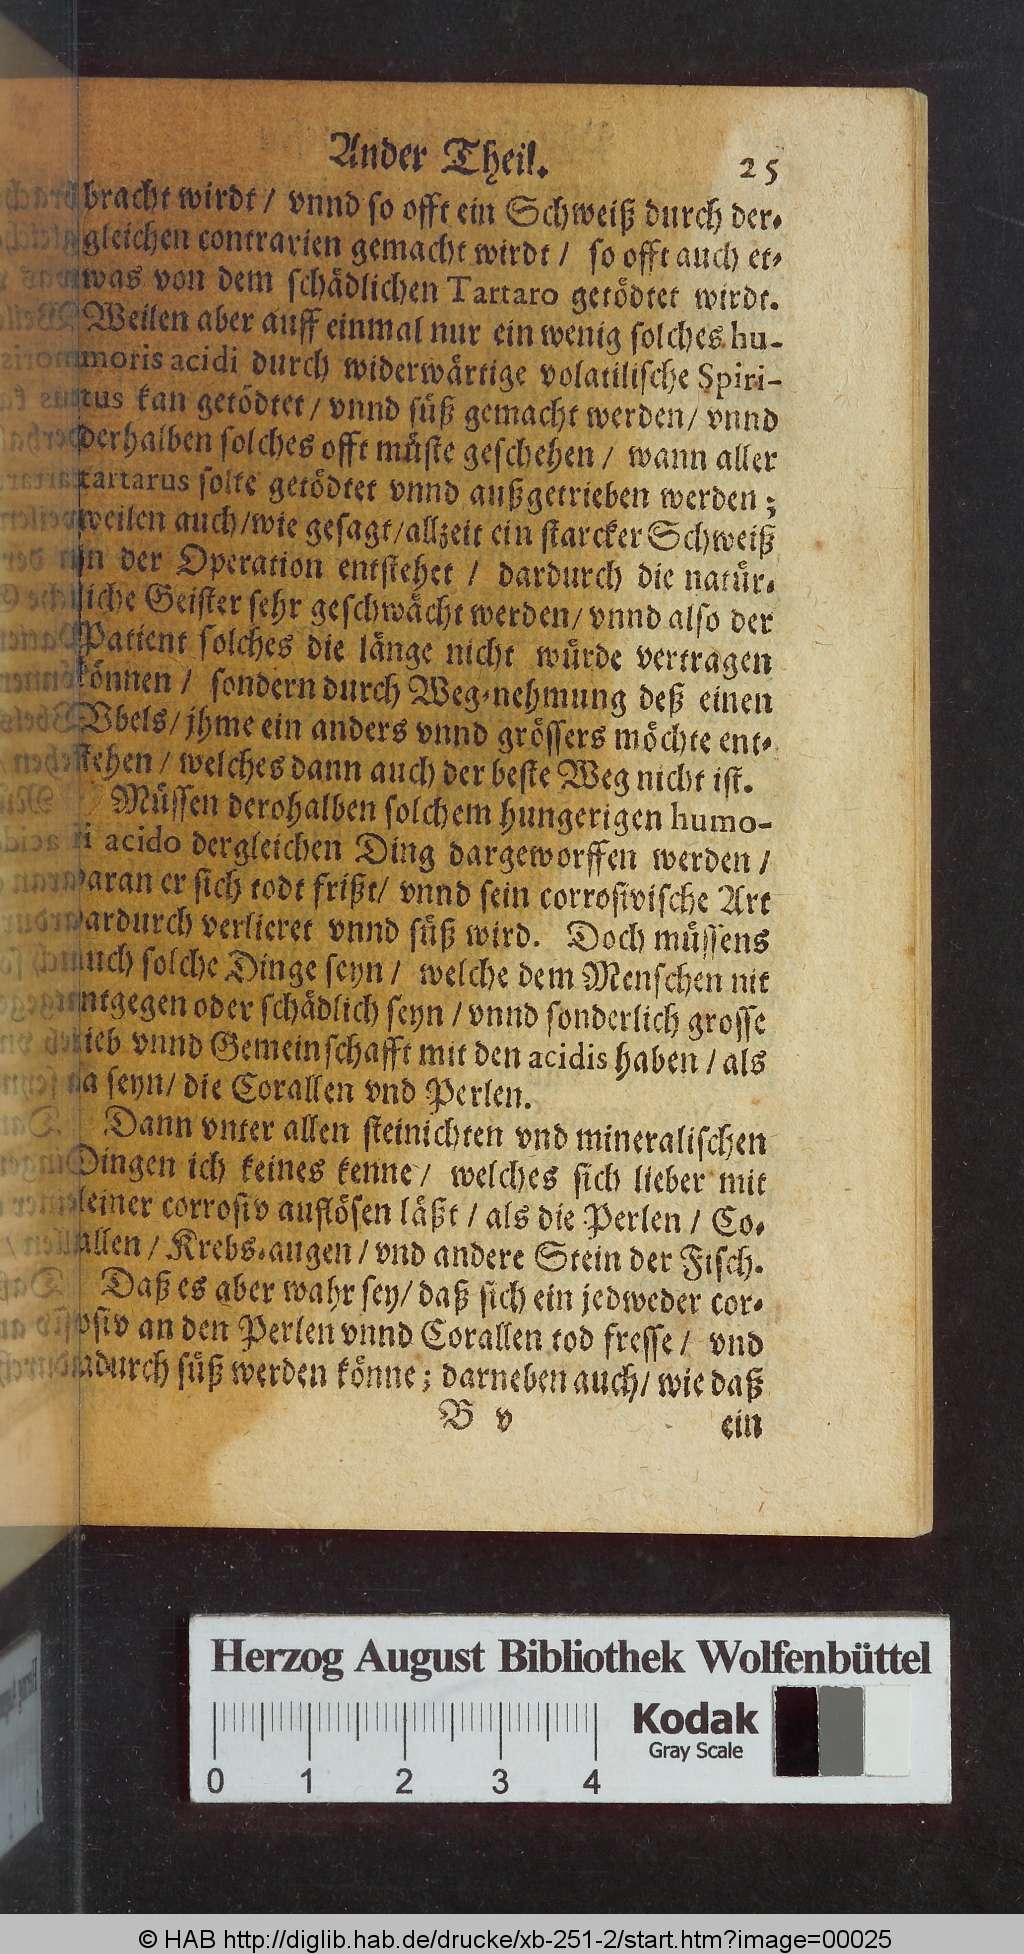 Ander Theil. 25
bracht wirdt / vnnd so offt ein Schweiß durch der-
gleichen contrarien gemacht wirdt / so offt auch et-
was von dem schädlichen Tartaro getödtet wirdt.
Weilen aber auff einmal nur ein wenig solches hu-
moris acidi durch widerwärtige volatilische Spiri-
tus kan getödtet / vnnd süß gemacht werden / vnnd
derhalben solches offt müste geschehen / wann aller
tartarus solte getödtet vnnd außgetrieben werden ;
weilen auch / wie gesagt / allzeit ein starcker Schweiß
in der Operation entstehet / dardurch die natür-
liche Geister sehr geschwächt werden / vnnd also der
Patient solches die länge nicht würde vertragen
können / sondern durch Weg-nehmung deß einen
Vbels / jhme ein anders vnnd grössers möchte ent-
stehen / welches dann auch der beste Weg nicht ist.
Müssen derohalben solchem hungerigen humo-
ri acido dergleichen Ding dargeworffen werden /
daran er sich todt frißt / vnnd sein corrosivische Art
dardurch verlieret vnnd süß wird. Doch müssens
auch solche Dinge seyn / welche dem Menschen nit
entgegen oder schädlich seyn / vnnd sonderlich grosse
Lieb vnnd Gemeinschafft mit den acidis haben / als
da seyn / die Corallen vnd Perlen.
Dann vnter allen steinichten vnd mineralischen
Dingen ich keines kenne / welches sich lieber mit
einer corrosiv auflösen läßt / als die Perlen / Co-
rallen / Krebs-augen / vnd andere Stein der Fisch.
Daß es aber wahr sey / daß sich ein jedweder cor-
rosiv an den Perlen vnnd Corallen tod fresse / vnd
dadurch süß werden könne ; darneben auch / wie daß
B v ein
Herzog August Bibliothek Wolfenbüttel
Kodak
Gray Scale
0 1 2 3 4
© HAB http://diglib.hab.de/drucke/xb-251-2/start.htm?image=00025